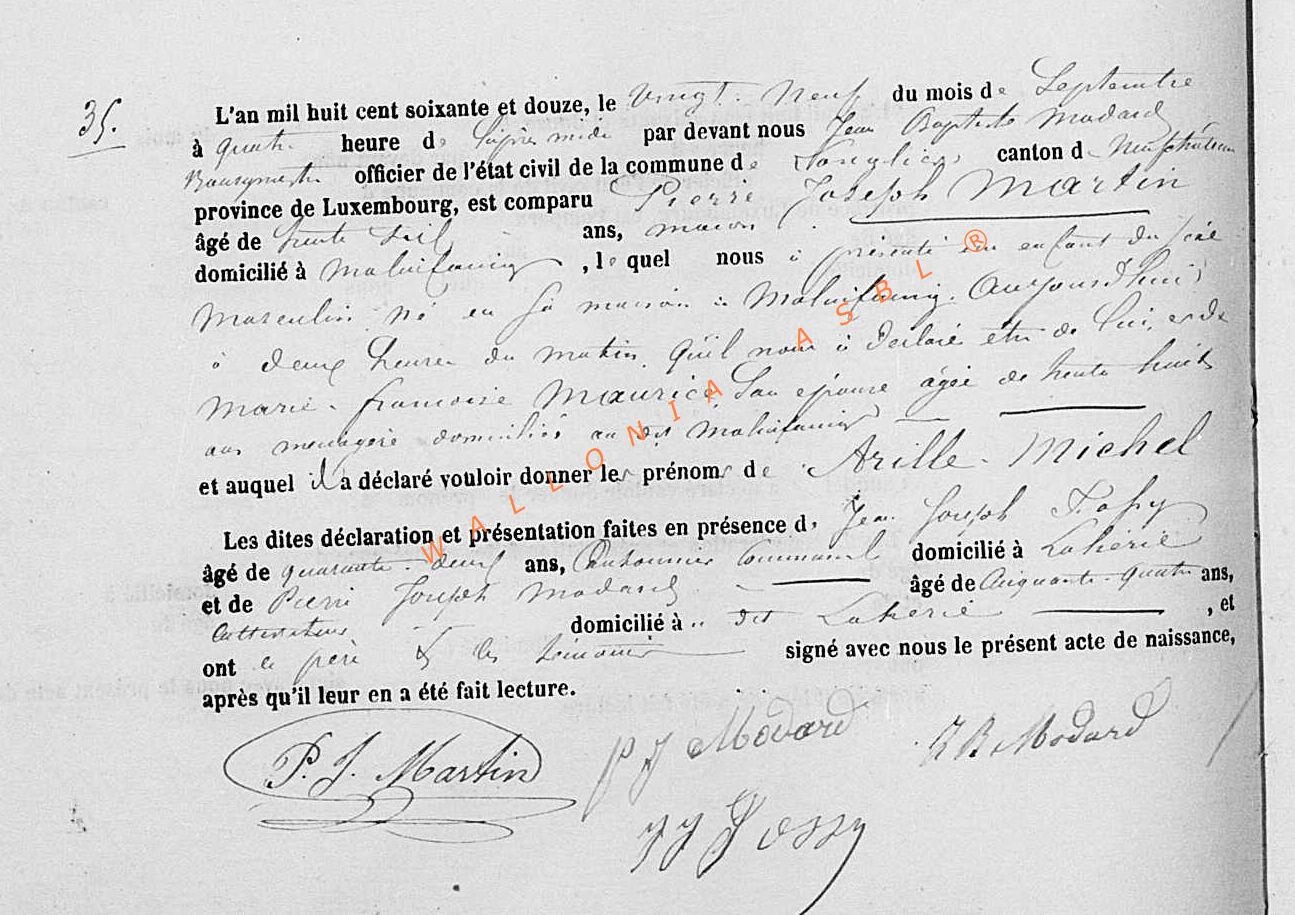 35.
L'an mil huit cent soixante et douze, le vingt neuf du mois de Septembre
à quatre heure de l'après midi par devant nous Jean Baptiste Modard
Bourgmestre officier de l'état civil de la commune de Longlier canton de Neufchâteau
province de Luxembourg, est comparu Pierre Joseph Martin
âgé de trente ans, maçon
domicilié à Malaifaing, lequel nous à présenté un enfant du sexe
Masculin né en sa maison à Malaifaing. Aujourd'hui
à deux heures du matin, qu'il nous à déclaré être de lui, et de
Marie Françoise Maurice, Son épouse âgée de trente huit
ans menagère domiciliés au dit Malaifaing
et auquel il a déclaré vouloir donner les prénoms de Arille Michel
Les dites déclaration et présentation faites en présence de Jean Joseph
âgé de quarante neuf ans, Cantonnier Communal domicilié à Laherie
et de Pierre Joseph Modard âgé de Cinquante quatre ans,
Cultivateur domicilié à dit Laherie, et
ont le père & les témoins signé avec nous le présent acte de naissance,
après qu'il leur en a été fait lecture.
P. J. Martin P J Modard J B Modard
J J Dossy
WALLONIA ASBL ®